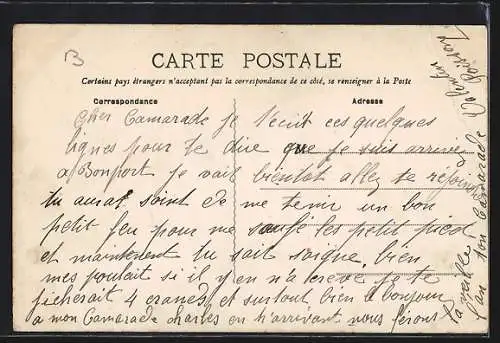 B
CARTE POSTALE
Certains pays étrangers n'acceptant pas la correspondance de ce côté, se renseigner à la Poste
Correspondance
Adresse
Cher Camarade je t'écrit ces quelques
lignes pour te dire que je suis arrivé
a Bonport je vait bientot aller te rejoindre
tu aurat soint de me tenir un bon
petit feu pour me les petit pied
et maintenant tu sait soigne bien
mes si il y en n'a creve je te
ficherait 4 cranes et surtout bien le bonjour
a mon Camarade charles en n'arrivant nous ferons
la veille
ton Camarade
Valentin